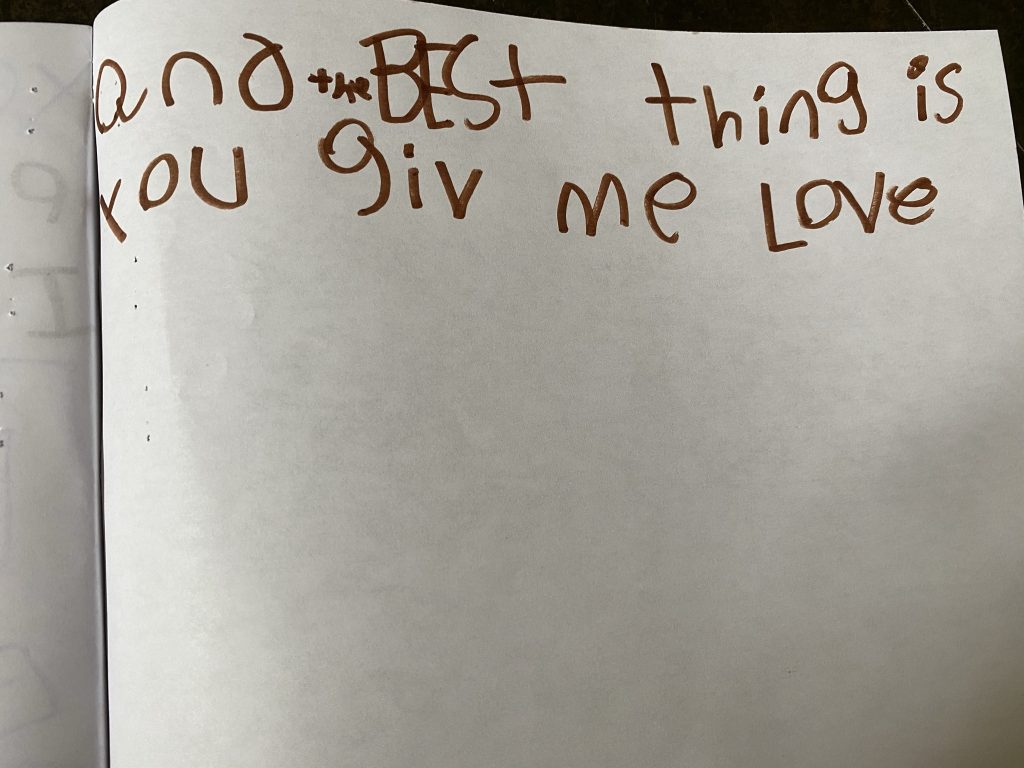 and the BESt thing is
you giv me Love